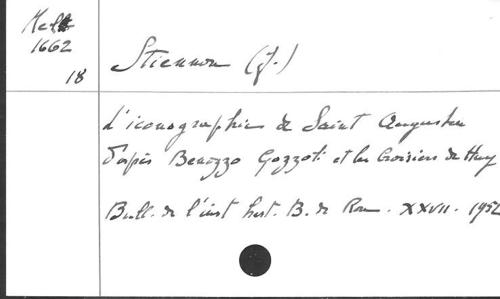 Melt
1662
18
Stiennon (J.)
L'iconographie de Saint Augustin
d'après Benozzo Gozzoli et les Croisiers de Huy
Bull. de l'inst hist. B. de Rome. XXVII. 1952